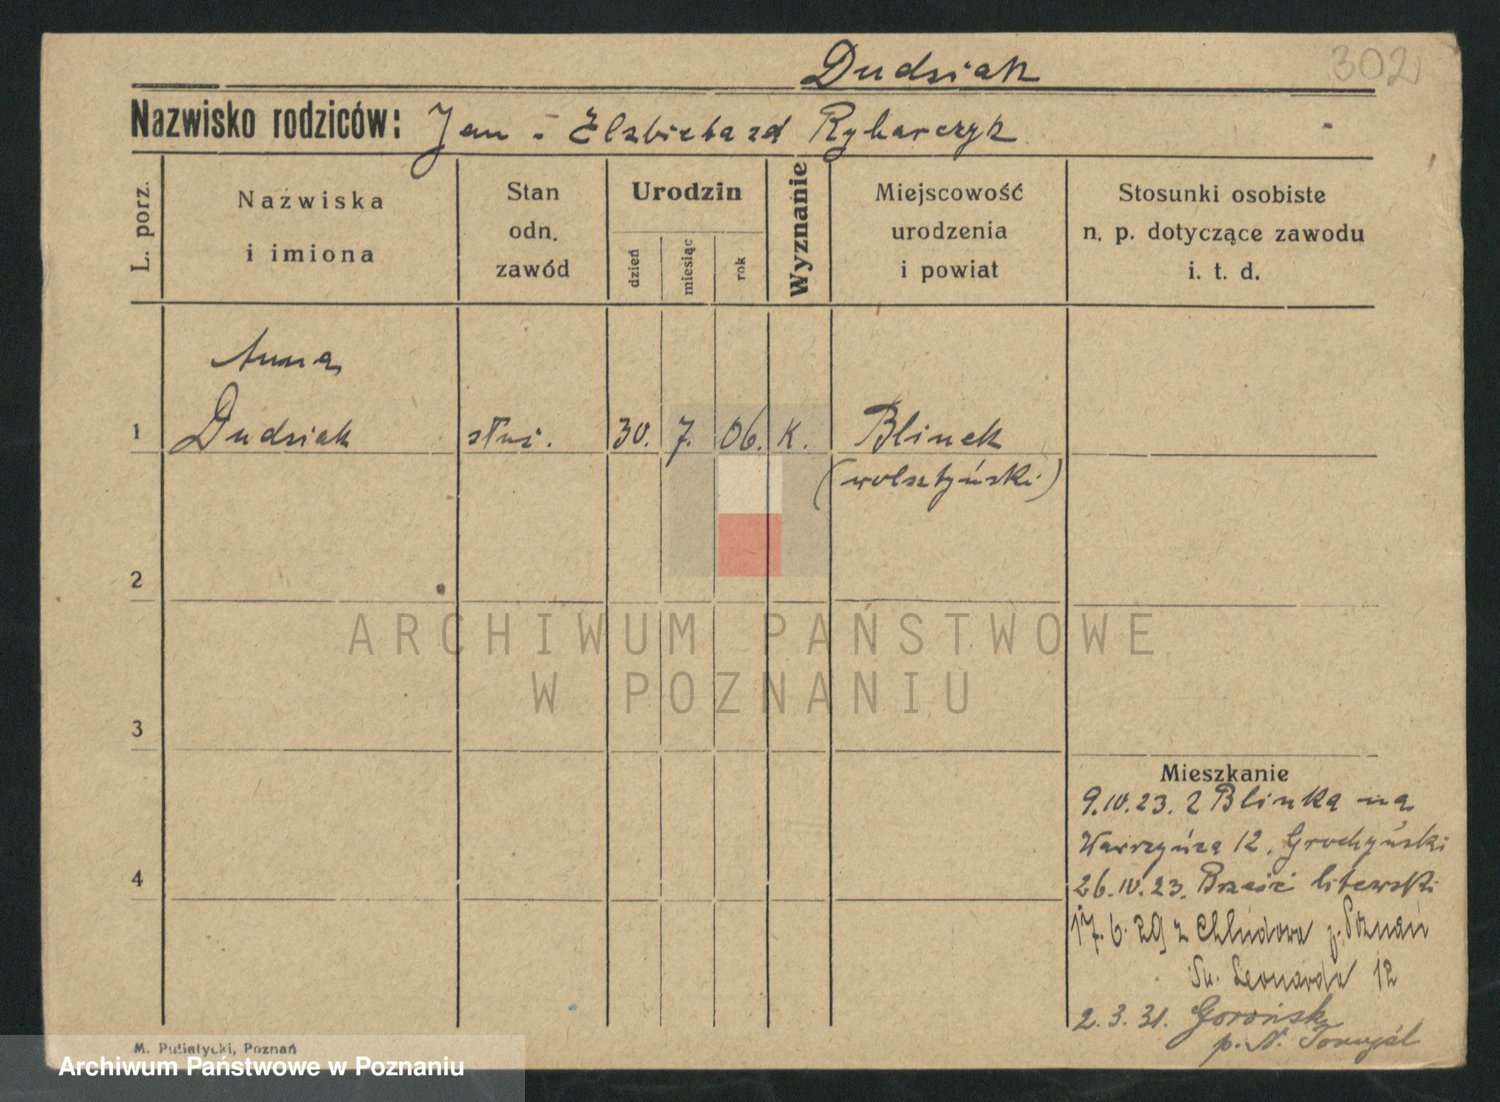 302
Dudziak
Nazwisko rodziców: Jan - Elżbieta zd Rybarczyk
L. porz.
Nazwiska
i imiona
Stan
odn.
zawód
Urodzin
dzień
miesiąc
rok
Wyznanie
Miejscowość
urodzenia
i powiat
Stosunki osobiste
n. p. dotyczące zawodu
i. t. d.
Anna
1 Dudziak służ. 30. 7. 06. K. Blinek
(wolsztyński)
2
ARCHIWUM PAŃSTWOWE
W POZNANIU
3
Mieszkanie
9.IV.23. z Blinka na
Wawrzyńca 12. Grochyński
4
26.IV.23. Brześć litewski
17.6.29 z Chludowa p. Poznań
Św. Leonarda 12
2.3.31. Gorońsk
p. N. Tomyśl
M. Putiatycki, Poznań
Archiwum Państwowe w Poznaniu